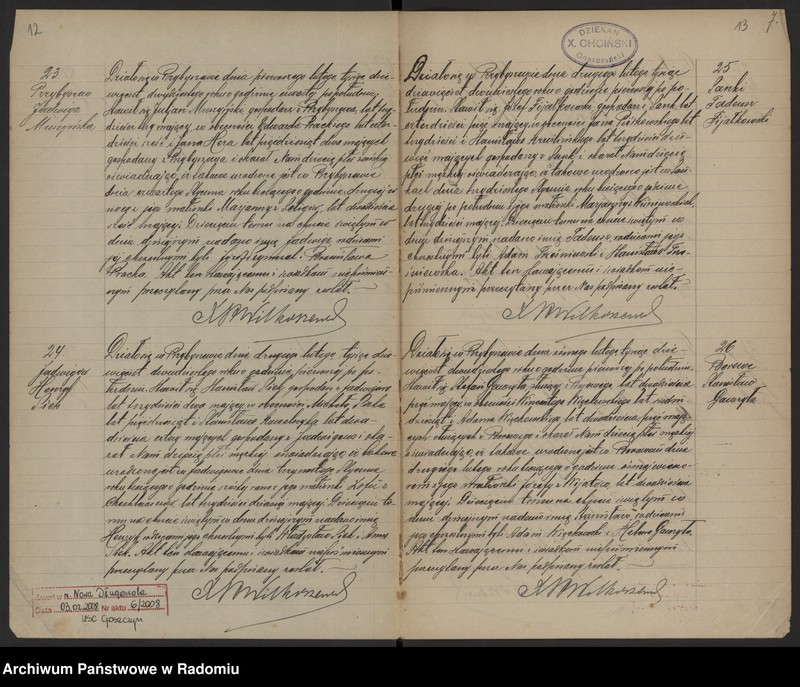 12
23
Przybyszew
Jadwiga
Muszyńska
Działo się w Przybyszewie dnia pierwszego lutego tysiąc dzie-
więćset dwudziestego roku o godzinie czwartej po południu.
Stawił się Julian Muszyński gospodarz z Przybyszewa, lat trzy-
dzieści mający, w obecności Edwarda Prackiego lat czter-
dzieści i Jana Hera lat pięćdziesiąt dwa mających
gospodarzy z Przybyszewa i okazał Nam dziecię płci żeńskiej
oświadczając, iż takowe urodzone jest w Przybyszewie
dnia czwartego stycznia roku bieżącego o godzinie drugiej w
nocy z jego małżonki Maryanny z lat dwadzieścia
sześć mającej. Dziecięciu temu na chrzcie świętym w
dniu dzisiejszym nadano imię Jadwiga, rodzicami
jej chrzestnymi byli Józef i Bronisława
Pracka. Akt ten stawającemu i świadkom niepiśmien-
nym przeczytany przez Nas podpisany został.
X. Wilkoszewski
24
Jadwigów
Henryk
Sick
Działo się w Przybyszewie dnia drugiego lutego tysiąc dzie-
więćset dwudziestego roku o godzinie pierwszej po po-
łudniu. Stawił się Stanisław Sick gospodarz z Jadwigowa
lat trzydzieści mający, w obecności Michała
lat pięćdziesiąt i Stanisława lat dwa-
dzieścia cztery mających gospodarzy z Jadwigowa i oka-
zał Nam dziecię płci męskiej oświadczając, iż takowe
urodzone jest w Jadwigowie dnia trzynastego stycznia
roku bieżącego o godzinie szóstej rano z jego małżonki Zofii z
lat trzydzieści dziewięć mającej. Dziecięciu te-
mu na chrzcie świętym w dniu dzisiejszym nadano imię
Henryk, rodzicami jego chrzestnymi byli Władysław Sick i Anna
Sick. Akt ten stawającemu i świadkom niepiśmiennym
przeczytany przez Nas podpisany został.
X. Wilkoszewski
Zmarł w m. Nowa Długowola
Data 03.02.2008 Nr aktu 6/2008
USC Goszczyn
13
7.
DZIEKAN
X. CHOIŃSKI
25
Sanki
Tadeusz
Fijałkowski
Działo się w Przybyszewie dnia drugiego lutego tysiąc
dziewięćset dwudziestego roku o godzinie pierwszej po po-
łudniu. Stawił się Józef Fijałkowski gospodarz z Sank lat
czterdzieści pięć mający, w obecności Jana lat
trzydzieści i Stanisława lat trzydzieści dzie-
więć mających gospodarzy z Sank, i okazał Nam dziecię
płci męskiej oświadczając, iż takowe urodzone jest w San-
kach dnia trzydziestego stycznia roku bieżącego o godzinie
drugiej po południu z jego małżonki Maryanny z
lat trzydzieści mającej. Dziecięciu temu na chrzcie świętym w
dniu dzisiejszym nadano imię Tadeusz, rodzicami jego
chrzestnymi byli Adam i Stanisława
Akt ten stawającemu i świadkom nie-
piśmiennym przeczytany przez Nas podpisany został.
X. Wilkoszewski
26
Borowe
Stanisław
Gawryła
Działo się w Przybyszewie dnia ósmego lutego tysiąc dzie-
więćset dwudziestego roku o godzinie pierwszej po południu.
Stawił się Stefan Gawryła, służący z lat dwadzieścia
pięć mający, w obecności Wincentego lat siedm-
dziesiąt i Adama lat dwadzieścia pięć mają-
cych służących z Borowego i okazał Nam dziecię płci męskiej
oświadczając, iż takowe urodzone jest w Borowem dnia
drugiego lutego roku bieżącego o godzinie ósmej wieczo-
rem z jego małżonki Józefy z lat dwadzieścia
mającej. Dziecięciu temu na chrzcie świętym w
dniu dzisiejszym nadano imię Stanisław, rodzicami
jego chrzestnymi byli Adam i Helena Gawryła.
Akt ten stawającemu i świadkom niepiśmiennym
przeczytany przez Nas podpisany został.
X. Wilkoszewski
Archiwum Państwowe w Radomiu